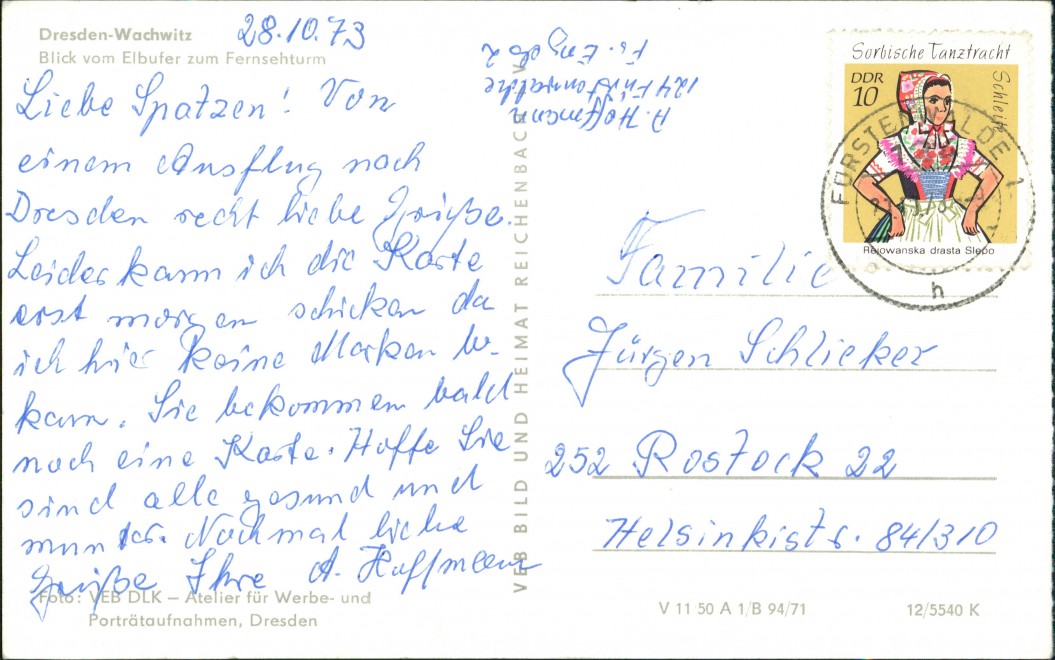 Dresden-Wachwitz
Blick vom Elbufer zum Fernsehturm
28.10.73
Liebe Spatzen! Von
einem Ausflug nach
Dresden recht liebe Grüße.
Leider kann ich die Karte
erst morgen schicken da
ich hier keine Marken be-
kam. Sie bekommen bald
noch eine Karte. Hoffe Sie
sind alle gesund und
munter. Nochmal liebe
Grüße Ihre A. Hoffmann
Foto: VEB DLK – Atelier für Werbe- und
Porträtaufnahmen, Dresden
VEB BILD UND HEIMAT REICHENBACH V
A. Hoffmann
124 Fürstenwalde
Fr. Engels 2
Sorbische Tanztracht
Schleife
DDR
10
Rejowanska drasta Slepo
FÜRSTENWALDE 1
h
Familie
Jürgen Schlieker
252 Rostock 22
Helsinkistr. 84/310
V 11 50 A 1/B 94/71
12/5540 K